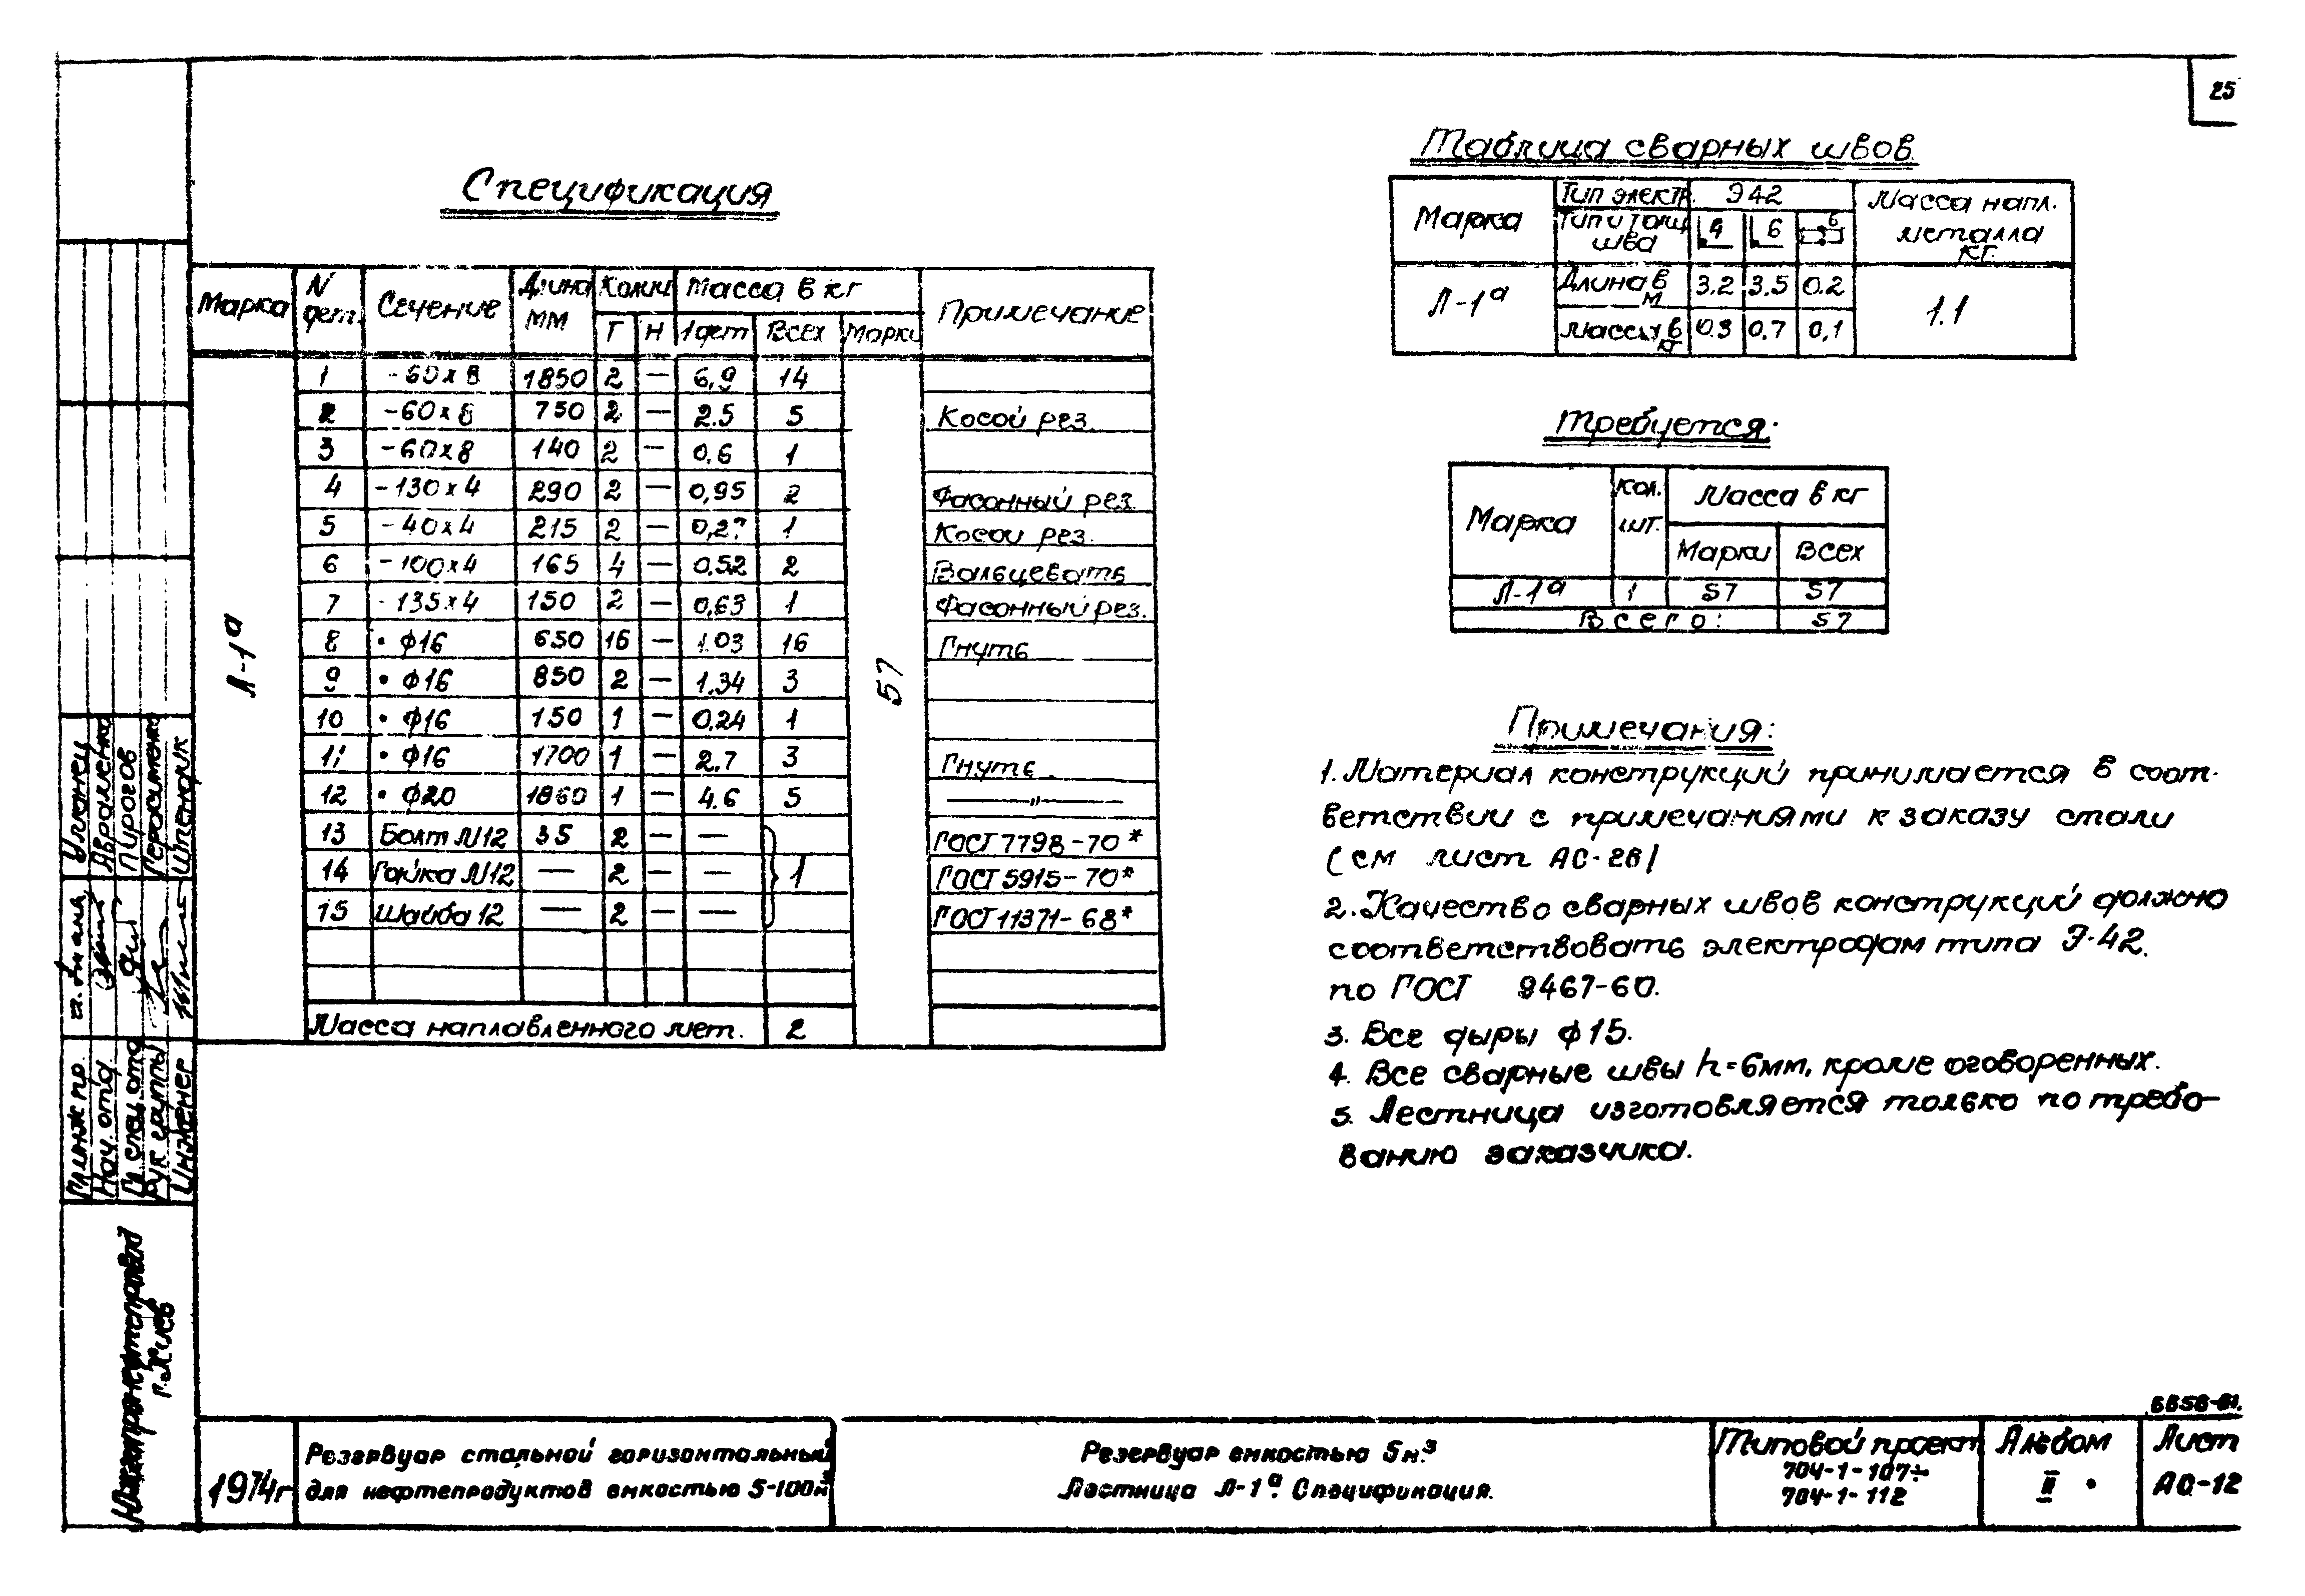 25
Спецификация
Марка N дет. Сечение Длина мм Колич. Т Н Масса в кг 1 дет Всех Марки Примечание
Л-1а 57
1 -60х8 1850 2 — 6,9 14
2 -60х8 750 2 — 2.5 5 Косой рез.
3 -60х8 140 2 — 0,6 1
4 -130х4 290 2 — 0,95 2 Фасонный рез.
5 -40х4 215 2 — 1 Косой рез.
6 -100х4 165 4 — 0.52 2 Вальцевать
7 -135х4 150 2 — 0,63 1 Фасонный рез.
8 • ф16 650 16 — 1.03 16 Гнуть
9 • ф16 850 2 — 1.34 3
10 • ф16 150 1 — 0.24 1
11 • ф16 1700 1 — 2.7 3 Гнуть
12 • ф20 1860 1 — 4.6 5 —"—
13 Болт М12 35 2 — — ГОСТ 7798-70*
14 Гайка М12 — 2 — — 1 ГОСТ 5915-70*
15 Шайба 12 — 2 — — ГОСТ 11371-68*
Масса наплавленного мет. 2
Таблица сварных швов.
Марка Тип электр. Э42 Масса напл. металла кг.
Тип и толщ. шва 4 6 6
Л-1а Длина в м 3.2 3.5 0.2 1.1
Масса в кг 0.3 0.7 0,1
Требуется:
Марка Кол. шт. Масса в кг
Марки Всех
Л-1а 1 57 57
Всего: 57
Примечания:
1. Материал конструкций принимается в соот-
ветствии с примечаниями к заказу стали
(см лист АС-26)
2. Качество сварных швов конструкций должно
соответствовать электродам типа Э-42.
по ГОСТ 9467-60.
3. Все дыры ф15.
4. Все сварные швы h=6мм, кроме оговоренных.
5. Лестница изготовляется только по требо-
ванию заказчика.
Гл инж пр.
Нач. отд. Авраменко
Гл. спец. отд Пирогов
Рук группы Герасименко
Инженер Штенрик
Южгипронефтепровод
г. Киев
6656-01.
1974г
Резервуар стальной горизонтальный
для нефтепродуктов емкостью 5-100м3
Резервуар емкостью 5м.3
Лестница Л-1а. Спецификация.
Типовой проект
704-1-107÷
704-1-112
Альбом
II
Лист
АС-12